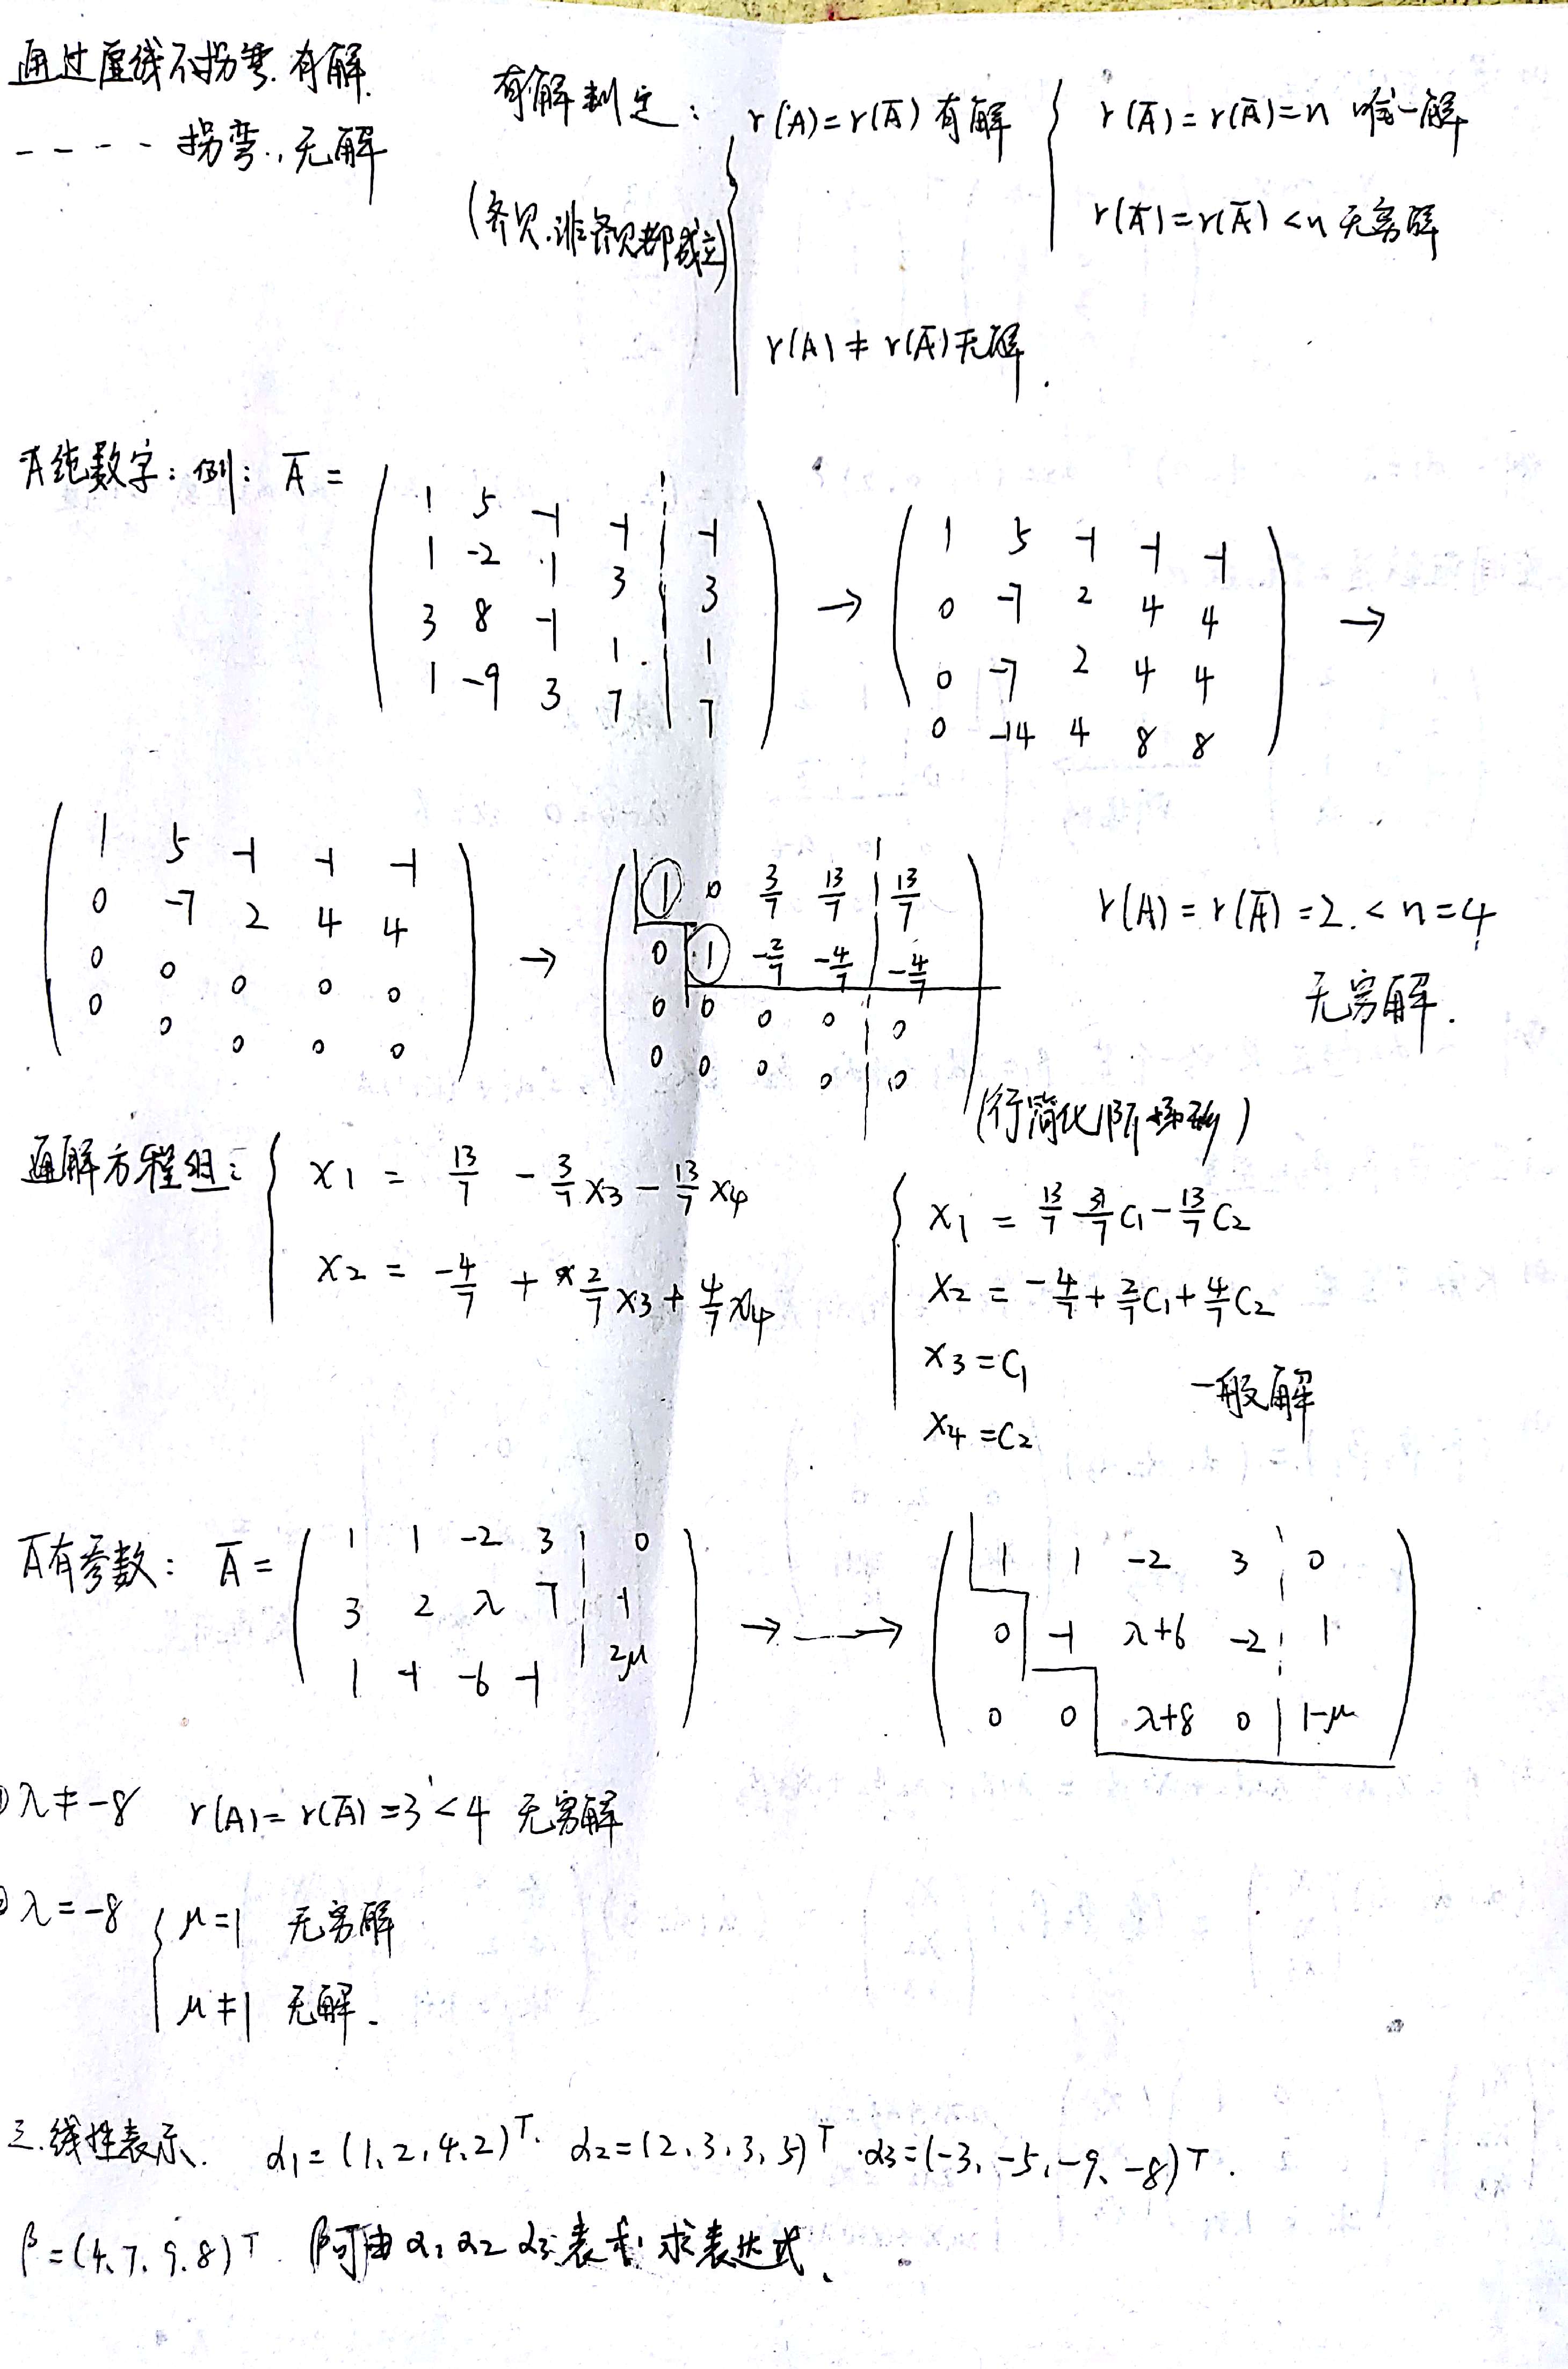 通过虚线不拐弯.有解.
- - - - 拐弯.,无解
有解判定: r(A)=r(A̅) 有解 { r(A̅)=r(A̅)=n 唯一解
r(A̅)=r(A̅)<n 无穷解
(齐次.非齐次都成立)
r(A)≠r(A̅)无解.
A̅纯数字: 例: A̅ =
( 1 5 -1 -1 ¦ -1
1 -2 1 3 ¦ 3
3 8 -1 1 ¦ 1
1 -9 3 7 ¦ 7 )
→
( 1 5 -1 -1 -1
0 -7 2 4 4
0 -7 2 4 4
0 -14 4 8 8 )
→
( 1 5 -1 -1 -1
0 -7 2 4 4
0 0 0 0 0
0 0 0 0 0 )
→
( 1 0 3/7 13/7 ¦ 13/7
0 1 -2/7 -4/7 ¦ -4/7
0 0 0 0 ¦ 0
0 0 0 0 ¦ 0 )
r(A)=r(A̅)=2.<n=4
无穷解.
(行简化阶梯形)
通解方程组: { x1 = 13/7 - 3/7 x3 - 13/7 x4
x2 = -4/7 + 2/7 x3 + 4/7 x4
{ x1 = 13/7 - 3/7 C1 - 13/7 C2
x2 = -4/7 + 2/7 C1 + 4/7 C2
x3 = C1
x4 = C2
一般解
A̅有参数: A̅ =
( 1 1 -2 3 ¦ 0
3 2 λ 7 ¦ 1
1 -1 -6 -1 ¦ 2μ )
→ ⟶
( 1 1 -2 3 ¦ 0
0 -1 λ+6 -2 ¦ 1
0 0 λ+8 0 | 1-μ )
① λ≠-8 r(A)=r(A̅)=3<4 无穷解
② λ=-8 { μ=1 无穷解
μ≠1 无解.
三.线性表示. α1=(1,2,4,2)ᵀ. α2=(2,3,3,5)ᵀ.α3=(-3,-5,-9,-8)ᵀ.
β=(4,7,9,8)ᵀ. β可由α1 α2 α3表示.求表达式.